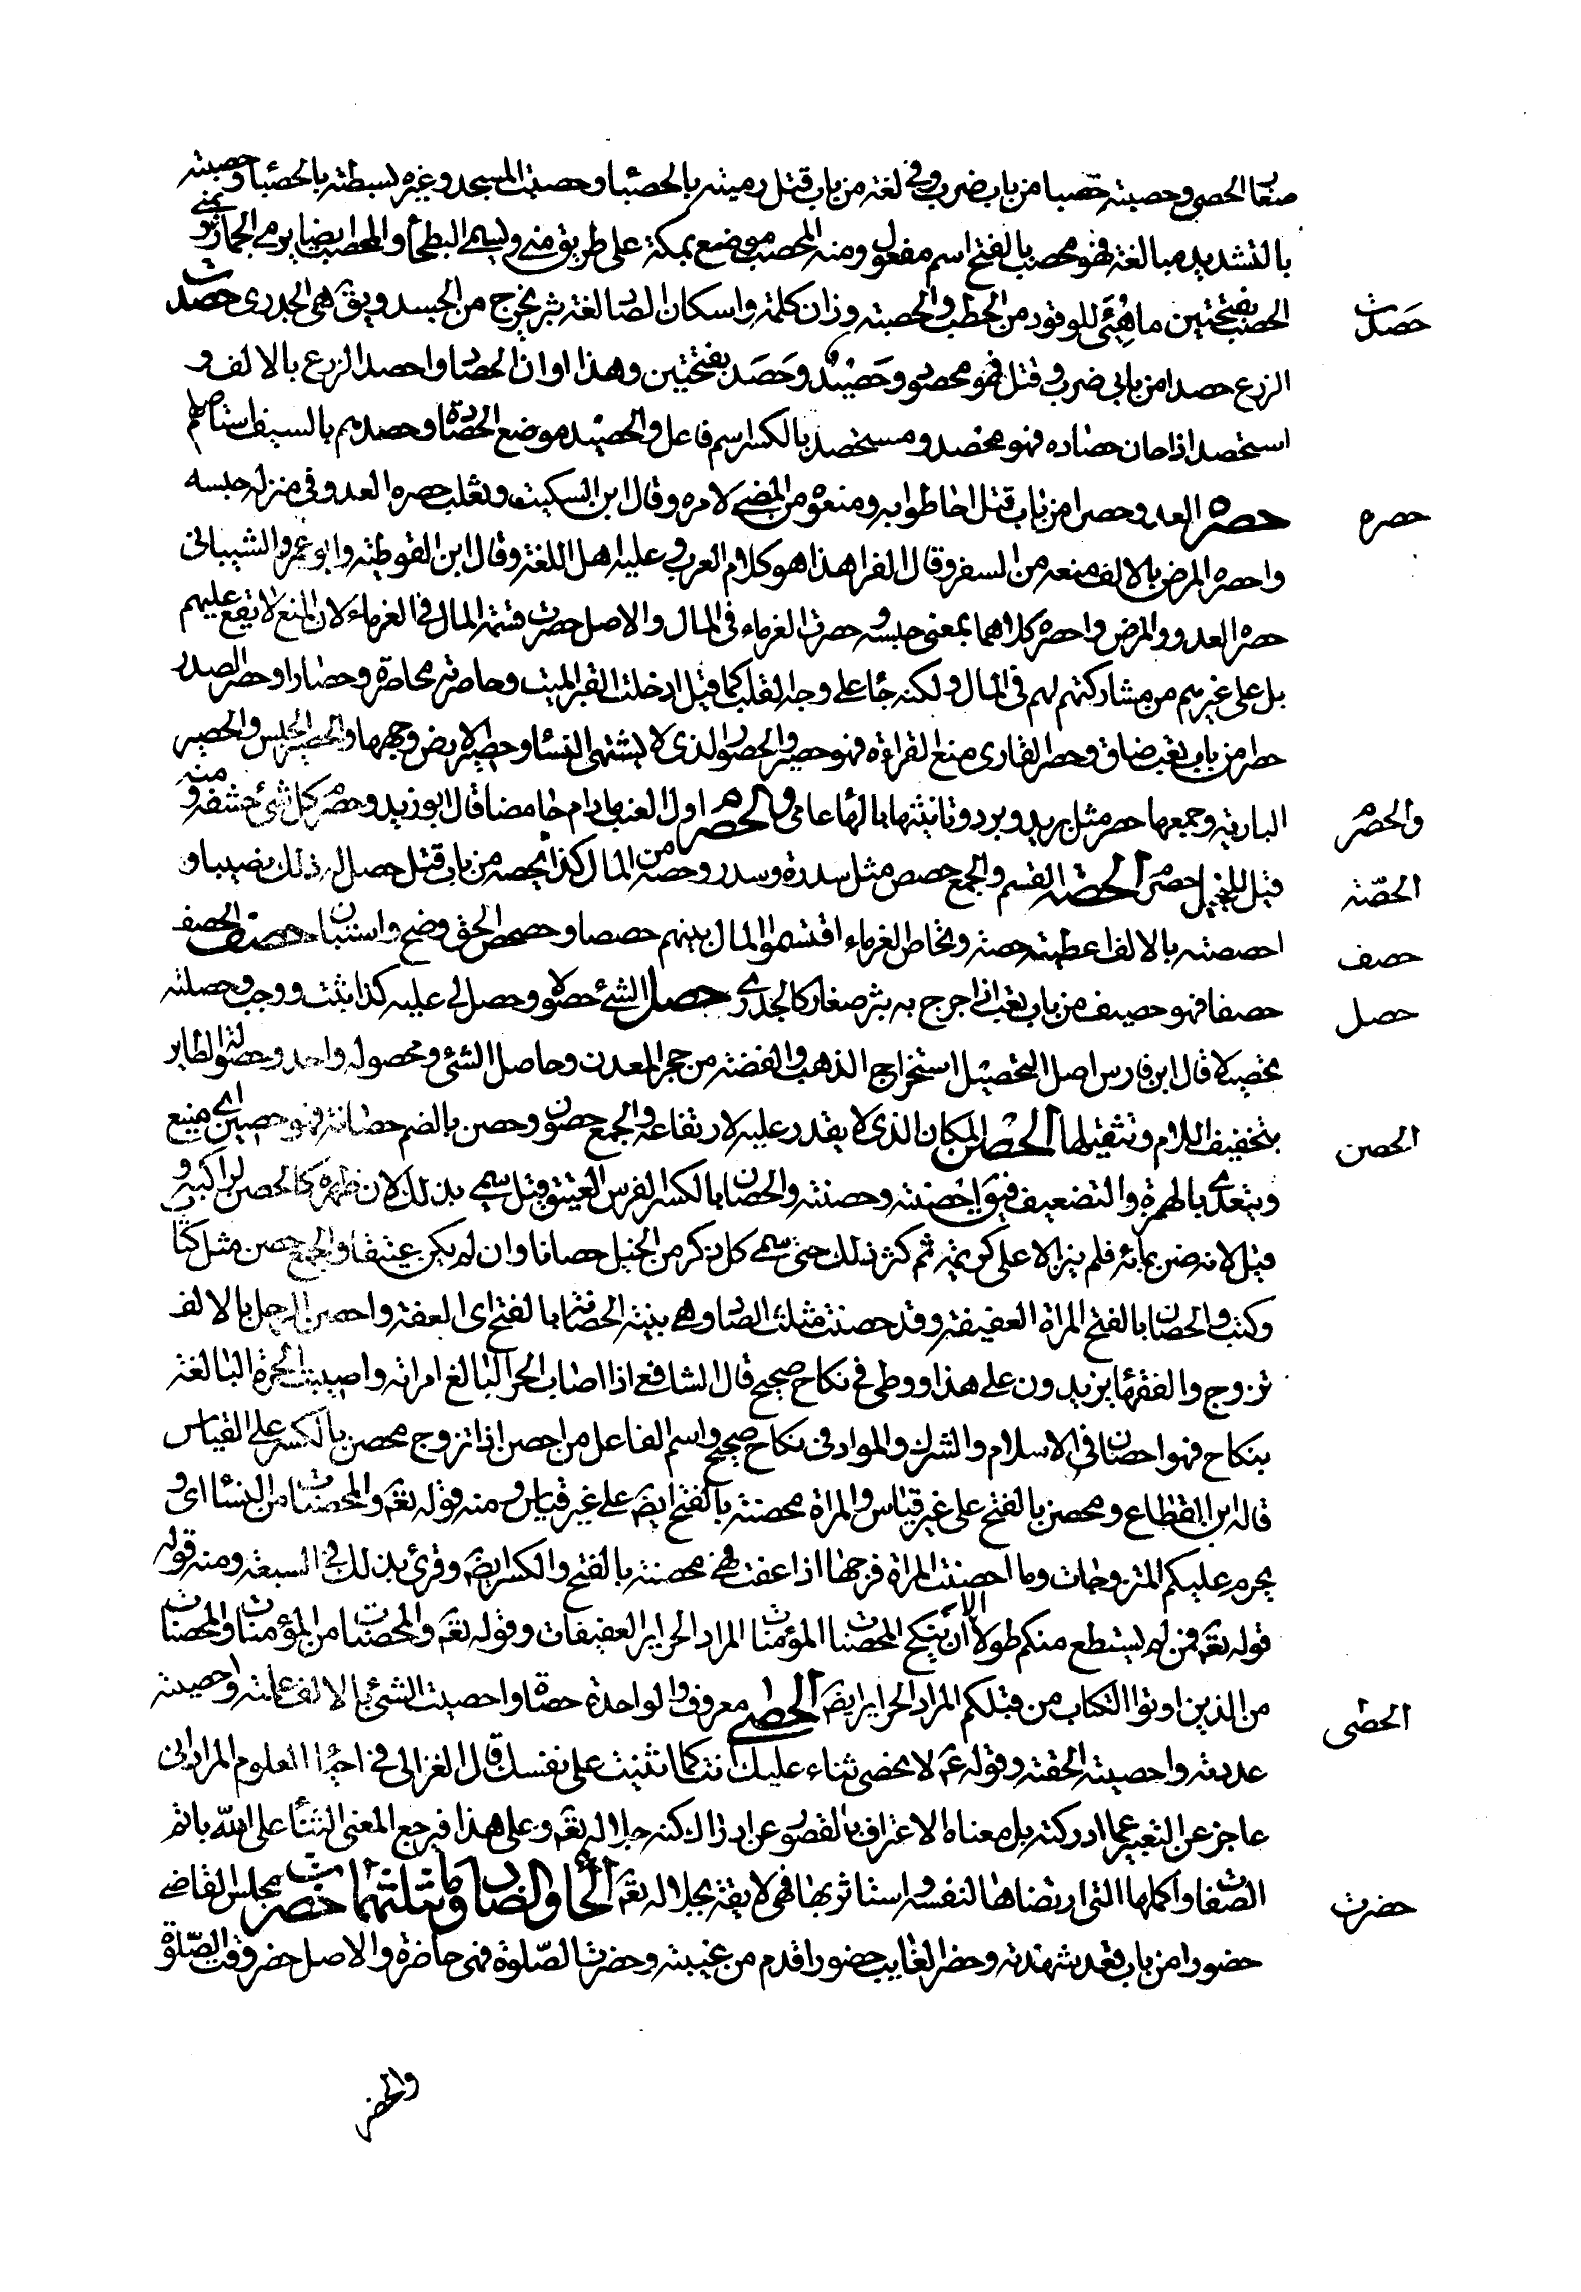 صغار الحصى وحصبته حصبا من باب ضرب وفى لغة من باب قتل رميته بالحصباء وحصبت المسجد وغيره بسطته بالحصباء وحصبته
بالتشديد مبالغة فهو محصب بالفتح اسم مفعول ومنه المحصب موضع بمكة على طريق منى ويسمى البطحاء والمحصب ايضا مرمى الجمار بمنى
الحصب بفتحتين ما هُيّئ للوقود من الحطب والحصبة وزان كلمة واسكان الصاد لغة بثر يخرج من الجسد ويق هى الجدرى حصدت
حَصدت
الزرع حصدا من بابى ضرب وقتل فهو محصود وحصيد وحَصَد بفتحتين وهذا اوان الحصاد واحصد الزرع بالالف و
استحصد اذا حان حصاده فهو محصد ومستحصد بالكسر اسم فاعل والحصيد موضع الحصاد وحصدهم بالسيف استاصلهم
حصره العدو حصرا من باب قتل احاطوا به ومنعوه من المضى لامره وقال ابن السكيت وثعلب حصره العدو فى منزله حبسه
حصره
واحصره المرض بالالف منعه من السفر وقال الفرا هذا هو كلام العرب وعليه اهل اللغة وقال ابن القوطية وابو عمرو الشيبانى
حصره العدو والمرض واحصره كلاهما بمعنى حبسه و حصرت الغرماء فى المال والاصل حصرت قسمة المال فى الغرماء لان المنع لا يقع عليهم
بل على غيرهم من مشاركتهم لهم فى المال ولكنه جاء على وجه القلب كما قيل ادخلت القبر الميت وحاصرته محاصرة وحصارا وحصر الصدر
حصرا من باب تعب ضاق وحصر القارى منع القراءة فهو حصير والحصور الذى لا يشتهى النساء وحصير الارض وجهها والحصير الحبس والحصير
البارية وجمعها حصر مثل بريد وبرد وتانيثها بالهاء عامى والحصرم اول العنب مادام حامضا قال ابو زيد وحصرم كل شئ حشفه و منه
والحصرم
قيل للبخيل حصرم الحصه القسم والجمع حصص مثل سدرة وسدر وحصه من المال كذا يحصه من باب قتل حصل له ذلك نصيبا و
الحصّة
احصصته بالالف اعطيته حصة وتحاص الغرماء اقتسموا المال بينهم حصصا وحصحص الحق وضح واستبان حصف الحصف
حصف
حصفا فهو حصيف من باب تعب اذا خرج به بثر صغار كالجدرى حصل الشئ حصولا وحصل لى عليه كذا ثبت ووجب وحصلته
حصل
تحصيلا قال ابن فارس اصل التحصيل استخراج الذهب والفضة من حجر المعدن وحاصل الشئ ومحصوله واحد وحوصلة الطاير
بتخفيف اللام وتثقيلها الحصن المكان الذى لا يقدر عليه لارتفاعه والجمع حصون وحصن بالضم حصانة فهو حصين اى منيع
الحصن
ويتعدى بالهمزة والتضعيف فيق احصنته وحصنته والحصان بالكسر الفرس العتيق قيل سمى بذلك لان ظهره كالحصن لراكبه و
قيل لانه ضن بمائه فلم ينز الا على كريمة ثم كثر ذلك حتى سمى كل ذكر من الخيل حصانا وان لم يكن عتيقا والجمع حصن مثل كتاب
وكتب والحصان بالفتح المراة العفيفة وقد حصنت مثلث الصاد وهى بينة الحصانة بالفتح اى العفة واحصن الرجل بالالف
تزوج والفقهاء يزيدون على هذا ووطى فى نكاح صحيح قال الشافعى اذا اصاب الحر البالغ امراته واصيبت الحرة البالغة
بنكاح فهو احصان فى الاسلام والشرك والمراد فى نكاح صحيح واسم الفاعل من احصن اذا تزوج محصن بالكسر على القياس
قاله ابن القطاع ومحصن بالفتح على غير قياس والمراة محصنة بالفتح ايضه على غير قياس ومنه قوله تعه والمحصنات من النساء اى و
يحرم عليكم المتزوجات وما احصنت المراة فرجها اذا عفت فهى محصنة بالفتح والكسر ايضه وقرئ بذلك فى السبعة ومنه قوله
قوله تعه فمن لم يستطع منكم طولا ان ينكح المحصنات المؤمنات المراد الحراير العفيفات وقوله تعه والمحصنات من المؤمنات والمحصنات
من الذين اوتوا الكتاب من قبلكم المراد الحراير ايضه الحصى معروف والواحدة حصاة واحصيت الشئ بالالف علمته واحصيته
الحصى
عددته واحصيته الحقته وقوله عم لا يحصى ثناء عليك انت كما اثنيت على نفسك قال الغزالى فى احياء العلوم المراد انى
عاجز عن التعبير عما ادركته بل معناه الاعتراف بالقصور عن ادراك كنه جلاله تعه وعلى هذا فيرجع المعنى الثناء على الله باتم
الصفات واكملها التى ارتضاها لنفسه و استاثر بها فهى لايقة بجلاله تعه الحاء والضاد وما يثلثهما حضرت مجلس القاضى
حضرت
حضورا من باب قعد شهدته وحضر الغايب حضورا قدم من غيبته وحضرت الصلوة فهى حاضرة والاصل حضر وقت الصّلوة
والحضر